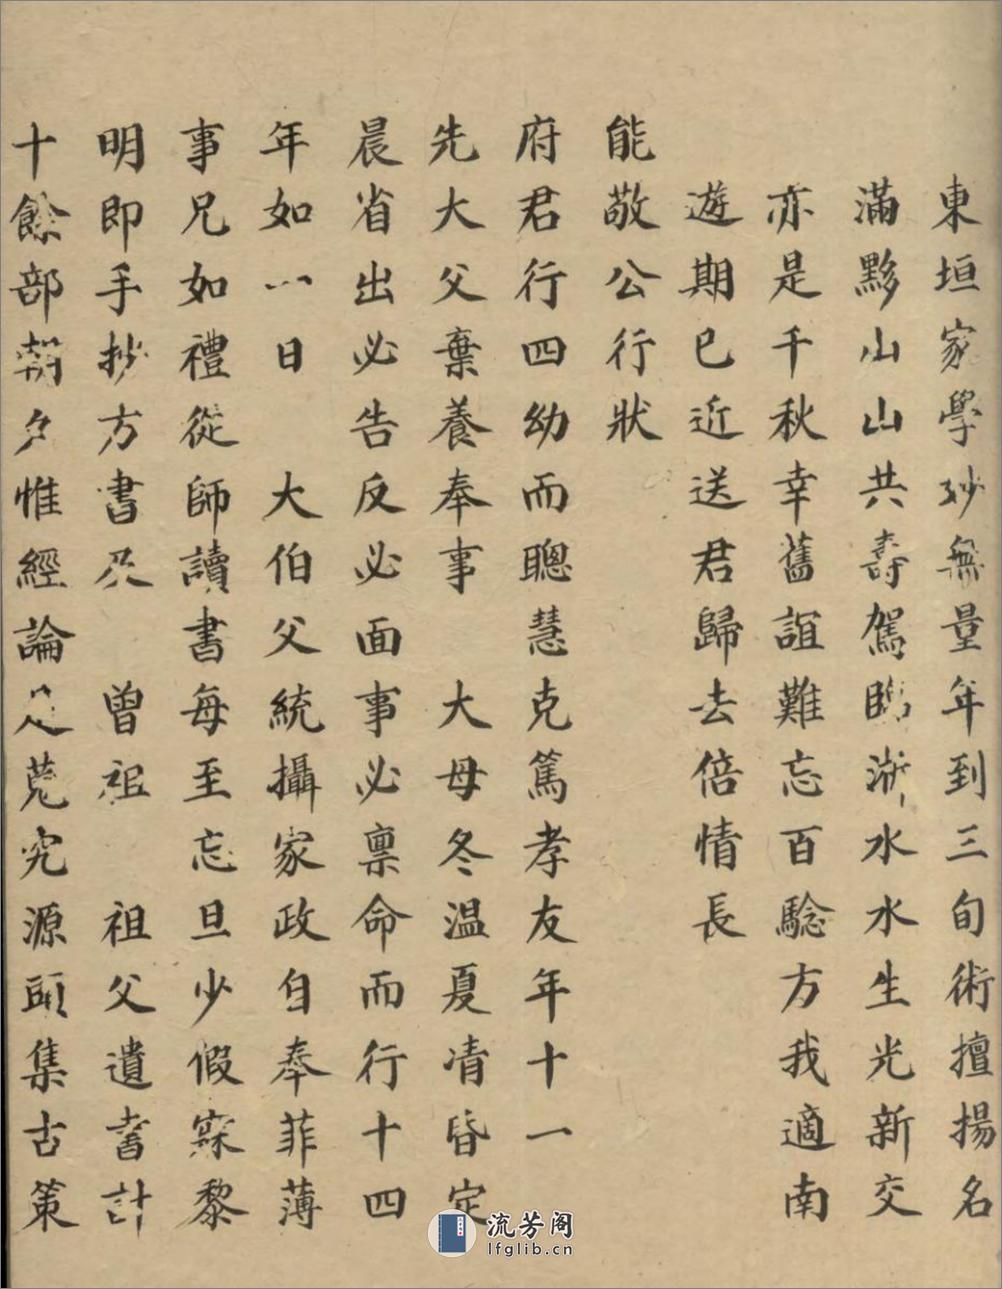 東垣家學妙無量年到三旬術擅揚名
滿黟山山共壽駕臨淅水水生光新交
亦是千秋幸舊誼難忘百驗方我適南
遊期已近送君歸去倍情長
能敬公行狀
府君行四幼而聰慧克篤孝友年十一
先大父棄養奉事 大母冬温夏凊昏定
晨省出必告反必面事必禀命而行十四
年如一日 大伯父統攝家政自奉菲薄
事兄如禮從師讀書每至忘旦少假寐黎
明即手抄方書及 曾祖 祖父遺書計
十餘部朝夕惟經論是蒐究源頭集古策
流芳阁
lfglib.cn